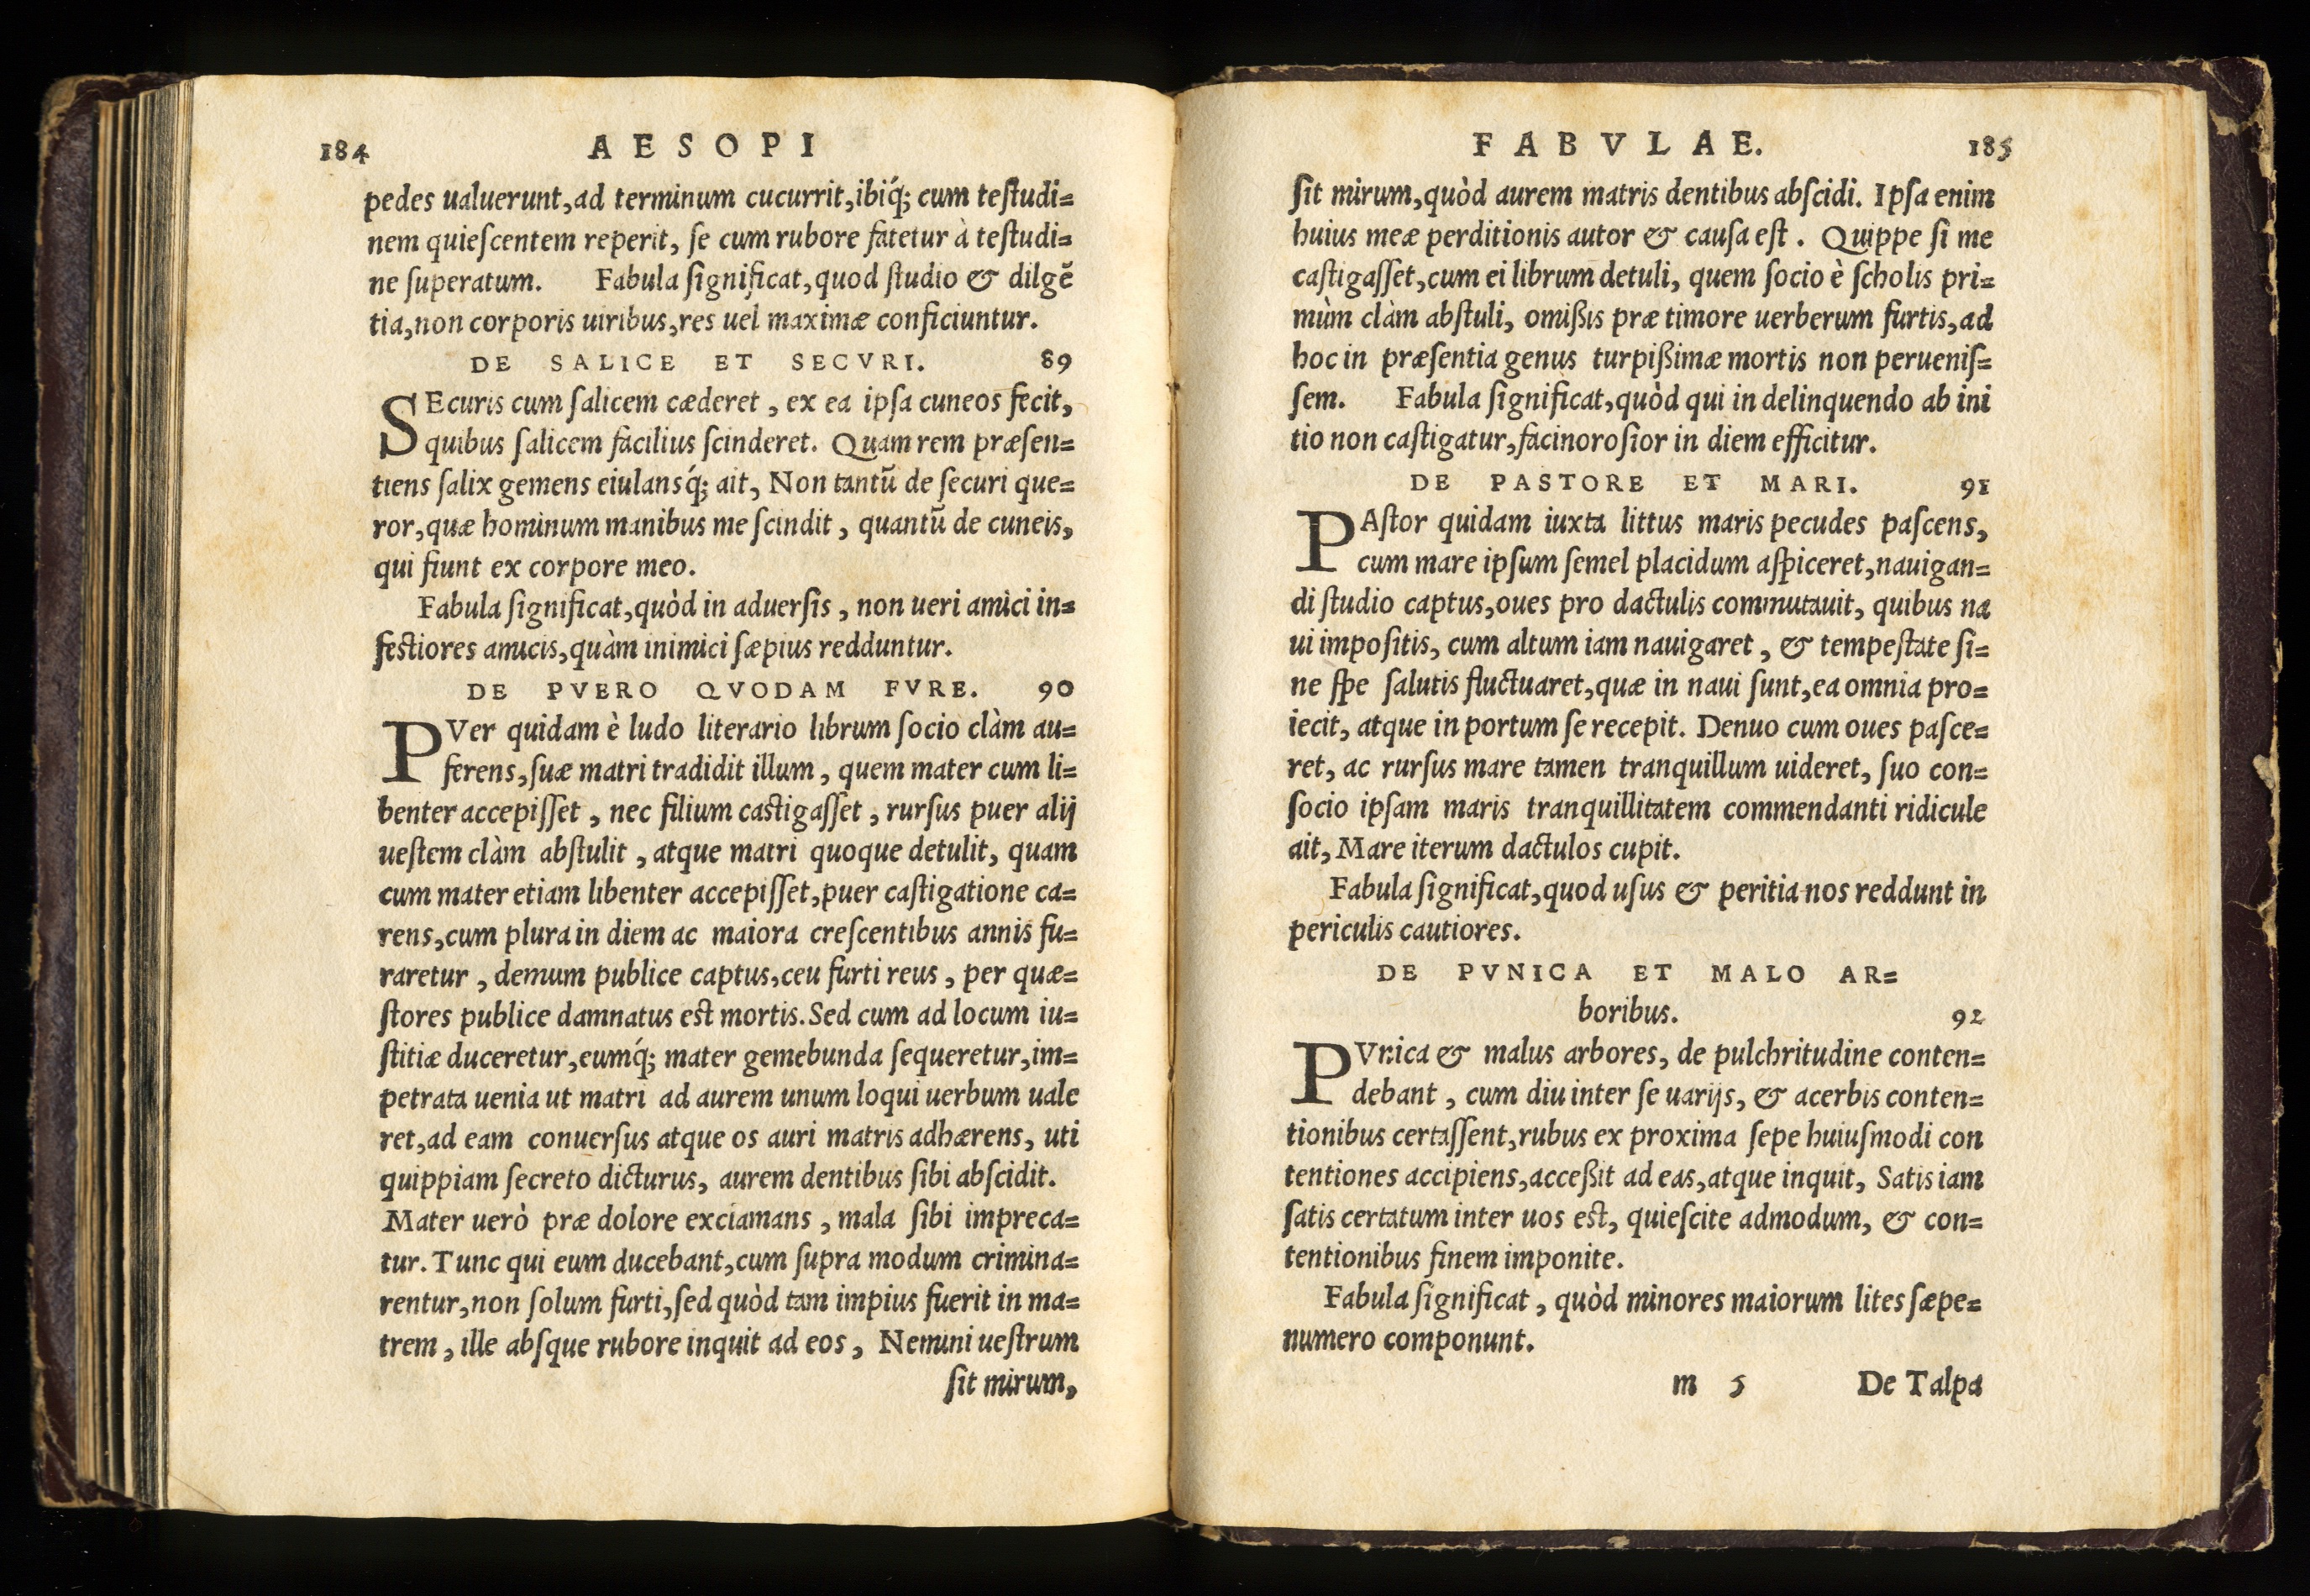 184 AESOPI
pedes ualuerunt, ad terminum cucurrit, ibiq́; cum teſtudi=
nem quieſcentem reperit, ſe cum rubore fatetur à teſtudi=
ne ſuperatum. Fabula ſignificat, quod ſtudio & dilgē
tia, non corporis uiribus, res uel maximæ conficiuntur.
DE SALICE ET SECVRI. 89
SEcuris cum ſalicem cæderet, ex ea ipſa cuneos fecit,
quibus ſalicem facilius ſcinderet. Quam rem præſen=
tiens ſalix gemens eiulansq́; ait, Non tantū de ſecuri que=
ror, quæ hominum manibus me ſcindit, quantū de cuneis,
qui fiunt ex corpore meo.
Fabula ſignificat, quòd in aduerſis, non ueri amici in=
feſtiores amicis, quàm inimici ſæpius redduntur.
DE PVERO QVODAM FVRE. 90
PVer quidam è ludo literario librum ſocio clàm au=
ferens, ſuæ matri tradidit illum, quem mater cum li=
benter accepiſſet, nec filium caſtigaſſet, rurſus puer alij
ueſtem clàm abſtulit, atque matri quoque detulit, quam
cum mater etiam libenter accepiſſet, puer caſtigatione ca=
rens, cum plura in diem ac maiora creſcentibus annis fu=
raretur, demum publice captus, ceu furti reus, per quæ=
ſtores publice damnatus eſt mortis. Sed cum ad locum iu=
ſtitiæ duceretur, eumq́; mater gemebunda ſequeretur, im=
petrata uenia ut matri ad aurem unum loqui uerbum uale
ret, ad eam conuerſus atque os auri matris adhærens, uti
quippiam ſecreto dicturus, aurem dentibus ſibi abſcidit.
Mater uerò præ dolore exclamans, mala ſibi impreca=
tur. Tunc qui eum ducebant, cum ſupra modum crimina=
rentur, non ſolum furti, ſed quòd tam impius fuerit in ma=
trem, ille abſque rubore inquit ad eos, Nemini ueſtrum
ſit mirum,
FABVLAE. 185
ſit mirum, quòd aurem matris dentibus abſcidi. Ipſa enim
huius meæ perditionis autor & cauſa eſt. Quippe ſi me
caſtigaſſet, cum ei librum detuli, quem ſocio è ſcholis pri=
mùm clàm abſtuli, omißis præ timore uerberum furtis, ad
hoc in præſentia genus turpißimæ mortis non perueniſ=
ſem. Fabula ſignificat, quòd qui in delinquendo ab ini
tio non caſtigatur, facinoroſior in diem efficitur.
DE PASTORE ET MARI. 91
PAſtor quidam iuxta littus maris pecudes paſcens,
cum mare ipſum ſemel placidum aſpiceret, nauigan=
di ſtudio captus, oues pro dactulis commutauit, quibus na
ui impoſitis, cum altum iam nauigaret, & tempeſtate ſi=
ne ſpe ſalutis fluctuaret, quæ in naui ſunt, ea omnia pro=
iecit, atque in portum ſe recepit. Denuo cum oues paſce=
ret, ac rurſus mare tamen tranquillum uideret, ſuo con=
ſocio ipſam maris tranquillitatem commendanti ridicule
ait, Mare iterum dactulos cupit.
Fabula ſignificat, quod uſus & peritia nos reddunt in
periculis cautiores.
DE PVNICA ET MALO AR=
boribus. 92
PVnica & malus arbores, de pulchritudine conten=
debant, cum diu inter ſe uarijs, & acerbis conten=
tionibus certaſſent, rubus ex proxima ſepe huiuſmodi con
tentiones accipiens, acceßit ad eas, atque inquit, Satis iam
ſatis certatum inter uos eſt, quieſcite admodum, & con=
tentionibus finem imponite.
Fabula ſignificat, quòd minores maiorum lites ſæpe=
numero componunt.
m 5 De Talpa